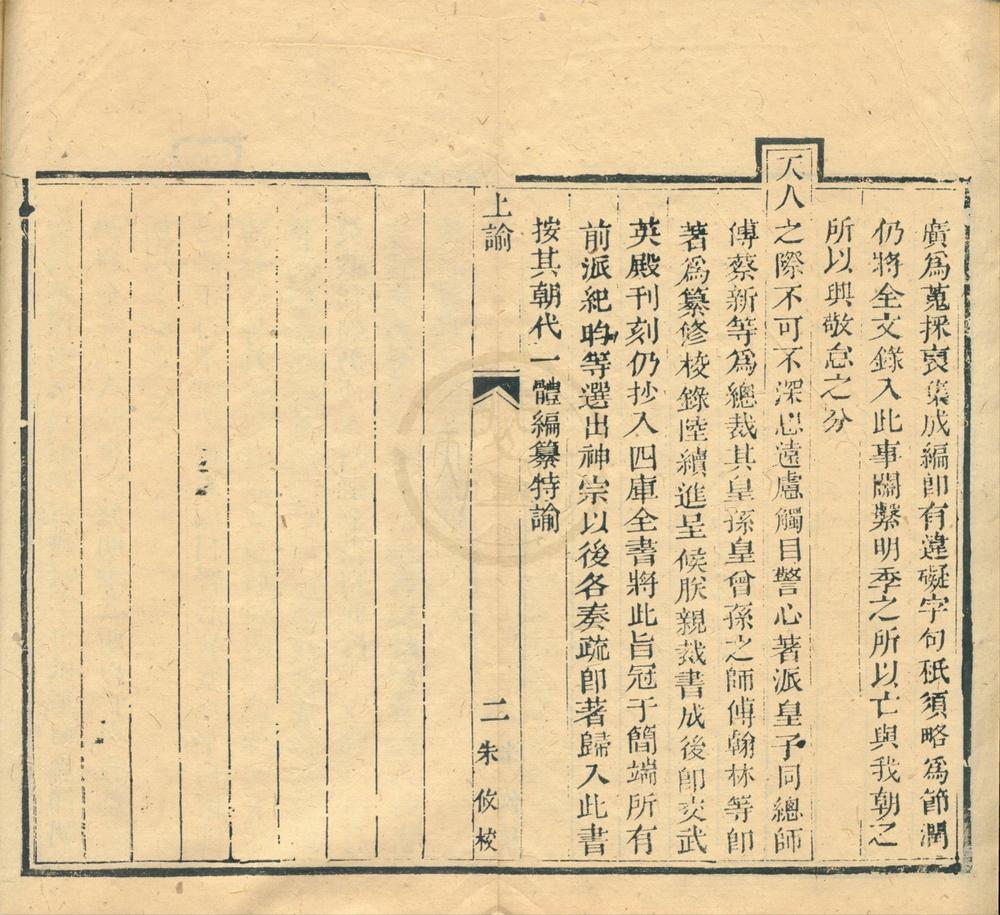 廣爲蒐採裒集成編卽有違礙字句秪須略爲節潤
仍將全文錄入此事關繫明季之所以亡與我朝之
所以興敬怠之分
天人之際不可不深思遠慮觸目警心著派皇子同總師
傅蔡新等爲總裁其皇孫皇曾孫之師傅翰林等卽
著爲纂修校錄陸續進呈候朕親裁書成後卽交武
英殿刊刻仍抄入四庫全書將此旨冠于簡端所有
前派紀昀等選出神宗以後各奏疏卽著歸入此書
按其朝代一體編纂特諭
上諭
二
朱攸校